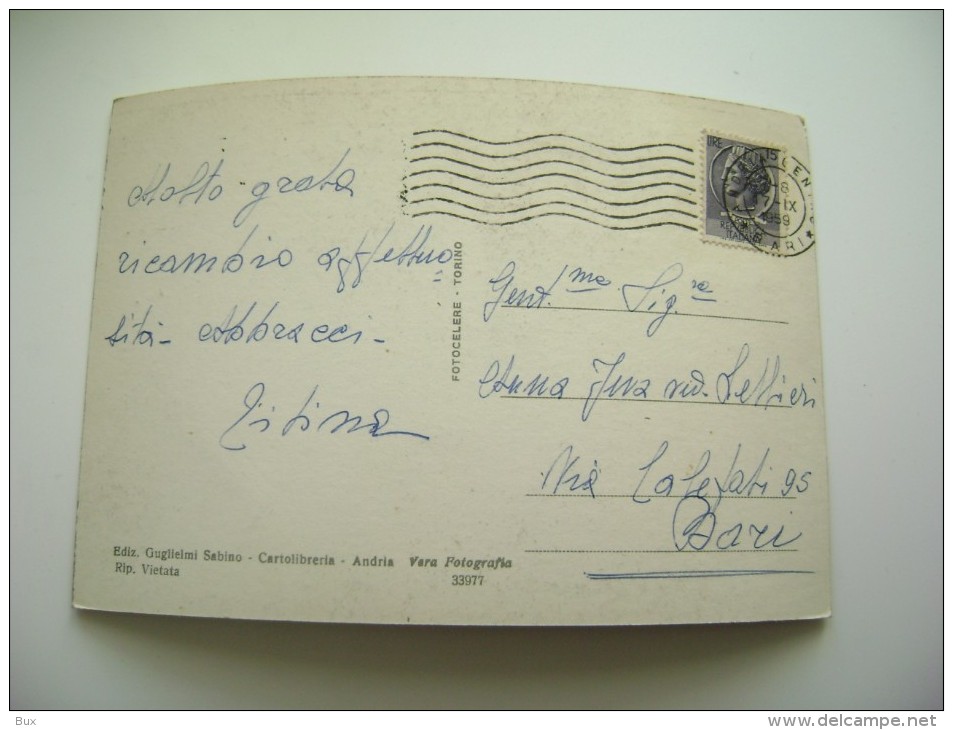 Molto grata
ricambio affettuo
sità - Abbracci -
Titina
FOTOCELERE - TORINO
LIRE 15
REPUBBLICA
ITALIANA
8
IX
1959
BARI
Gent.ma Sig.ra
Anna ved. Lettieri
Via Calefati 95
Bari
Ediz. Guglielmi Sabino - Cartolibreria - Andria Vera Fotografia
Rip. Vietata 33977
Bux
www.delcampe.net